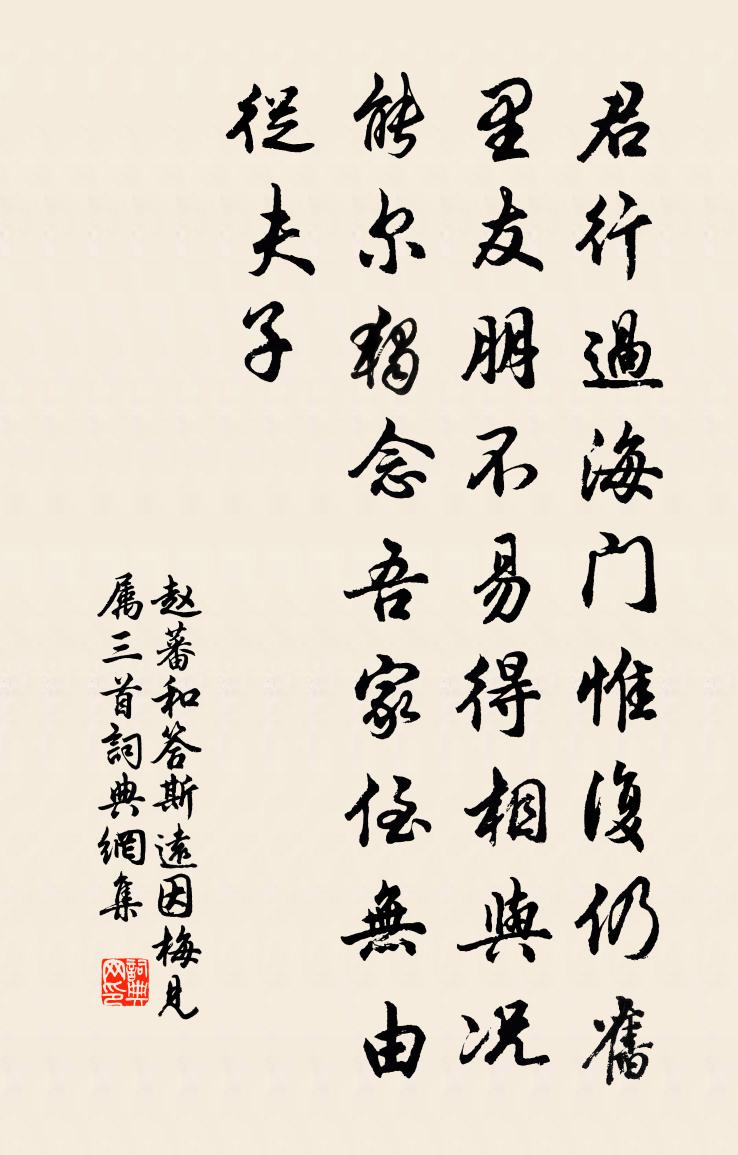 君行過海门惟復仍舊
里友朋不易得相與况
能尔獨念吾家侄無由
從夫子
赵蕃和答斯遠因梅見
属三首詞典網集
詞典
网印